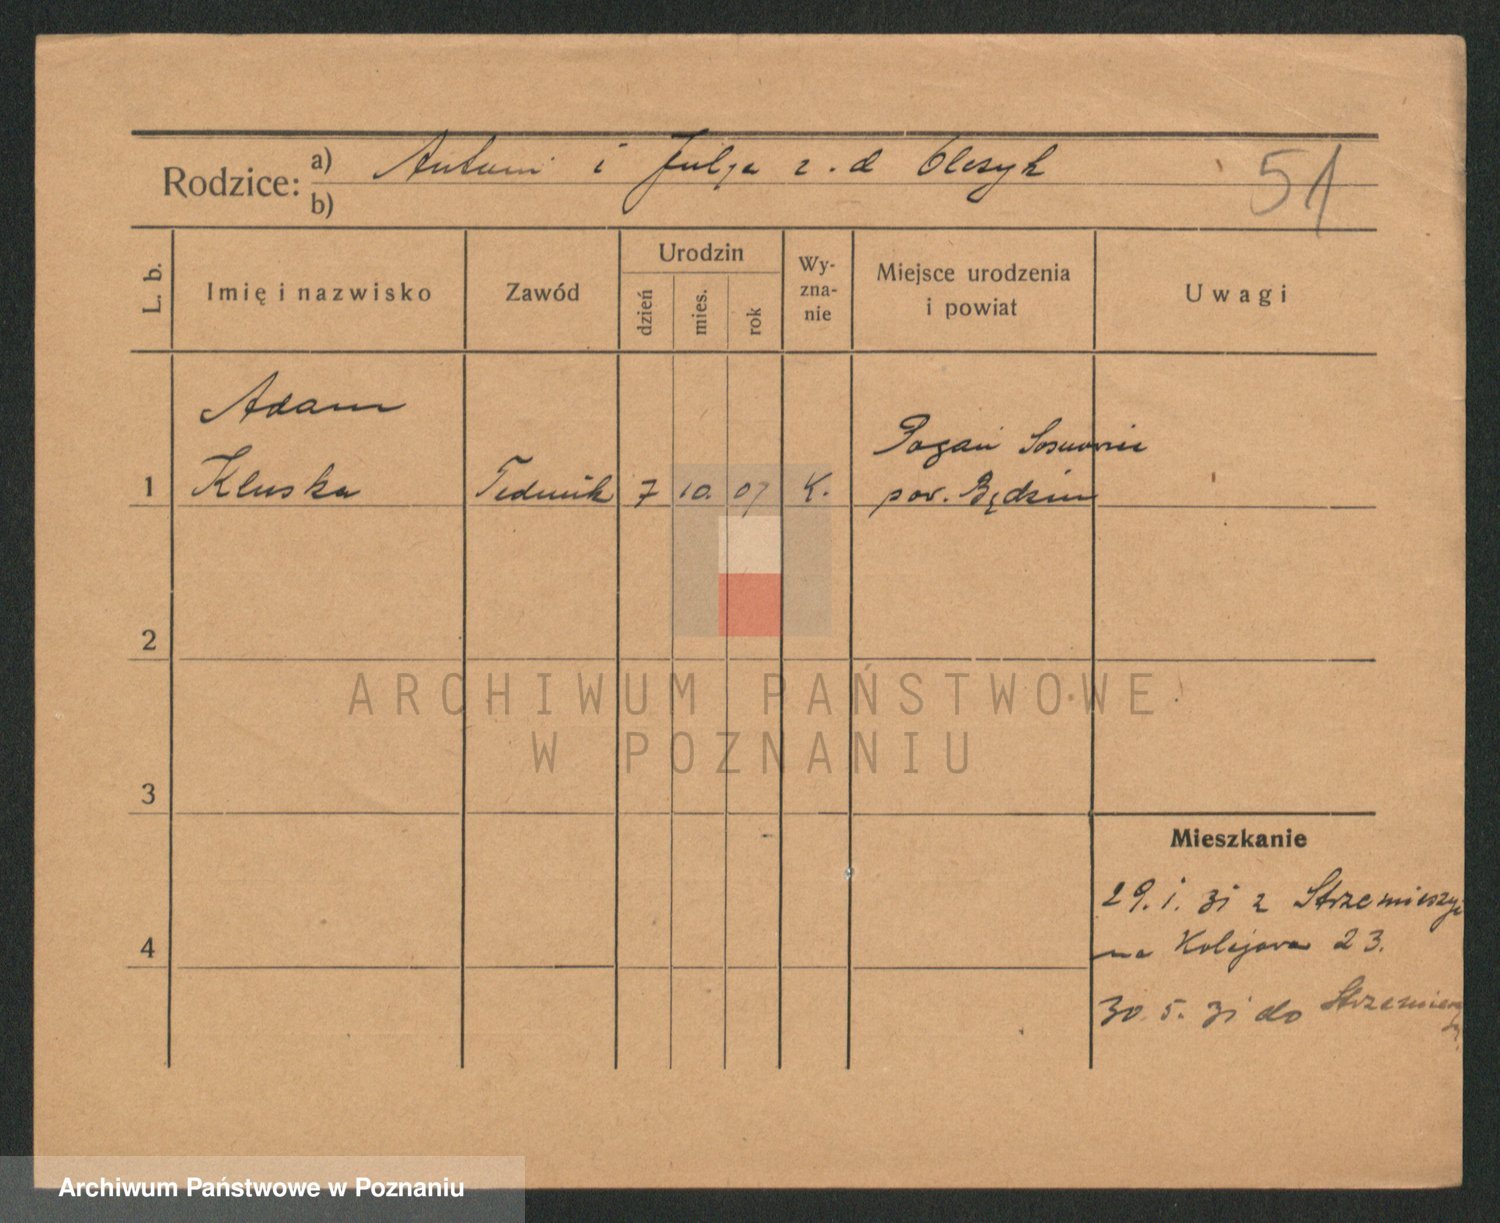 Rodzice: a) Antoni i Julja z. d Olczyk
b)
51
L. b.
Imię i nazwisko
Zawód
Urodzin
dzień
mies.
rok
Wy-
zna-
nie
Miejsce urodzenia
i powiat
Uwagi
Adam
1 Kluska Technik 7 10. 07 K.
Pogoń Sosnowiec
pow. Będzin
2
ARCHIWUM PAŃSTWOWE
W POZNANIU
3
Mieszkanie
29. 1. 31 z Strzemieszyc
4
na Kolejowa 23.
30. 5. 31 do
Archiwum Państwowe w Poznaniu